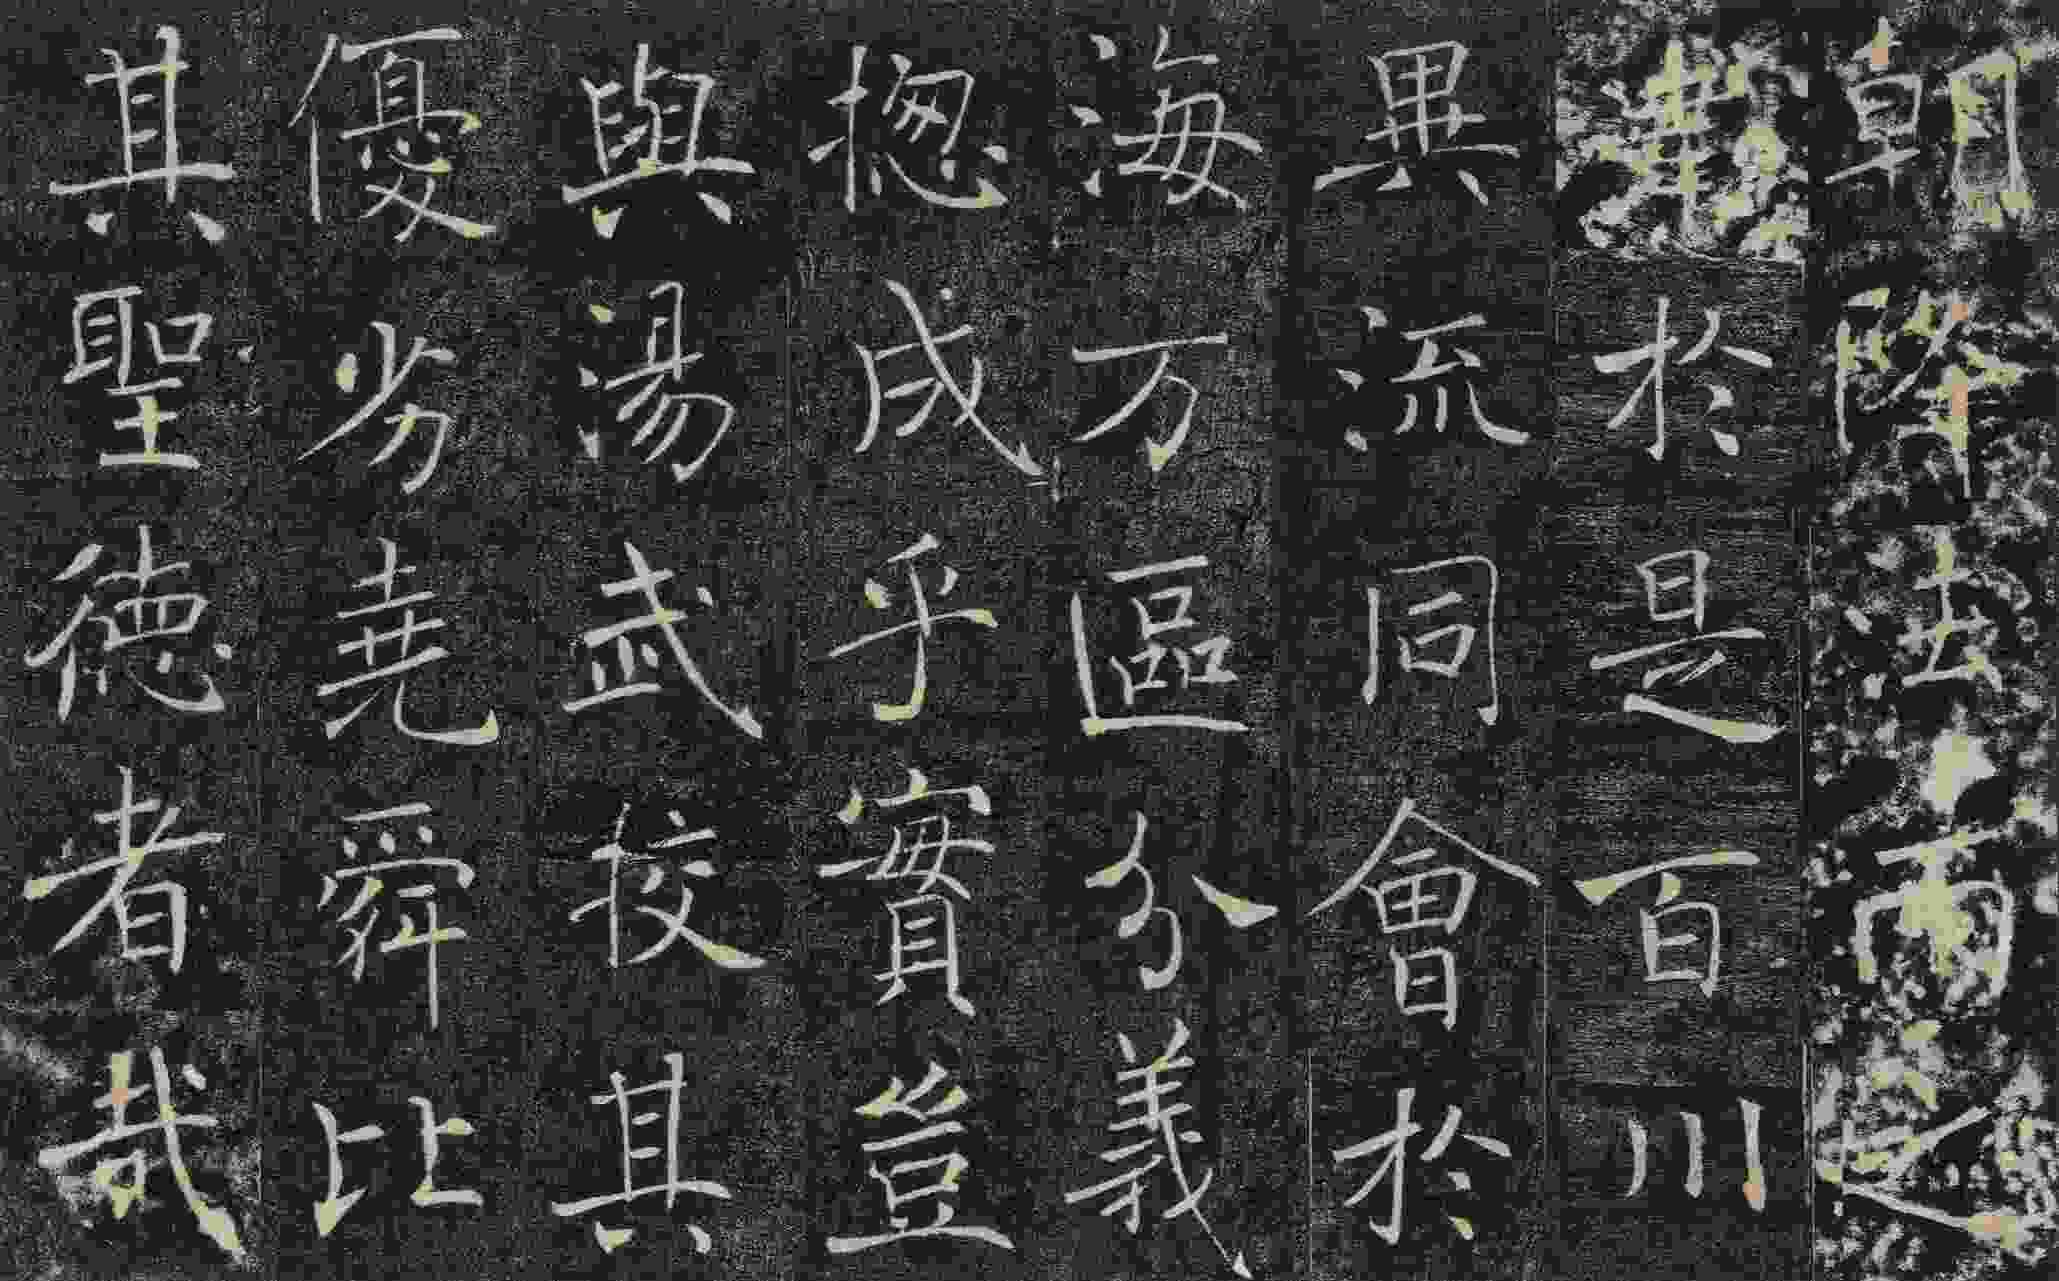 朝降法雨之
澤於是百川
異流同會於
海万區分義
揔成乎實豈
與湯武校其
優劣堯舜比
其聖徳者哉